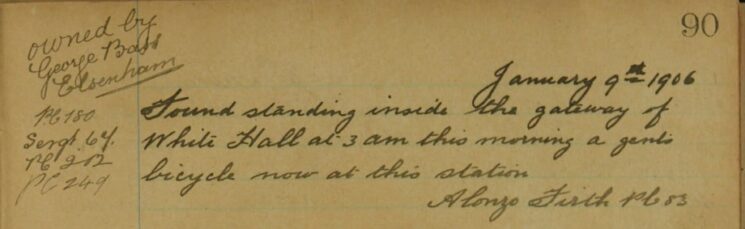 90
owned by
George Bass
Elsenham
PC 180
Sergt 64.
PC 202
PC 249
January 9th 1906
Found standing inside the gateway of
White Hall at 3 am this morning a gents
bicycle now at this station
Alonzo Firth PC 83